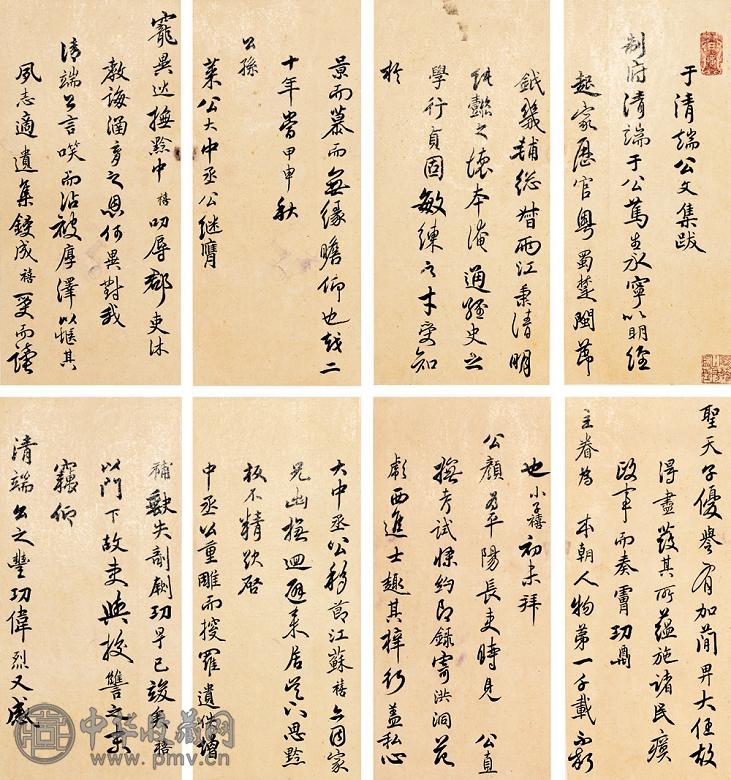 于清端公文集跋
制府清端于公篤生永寧以明經
起家歷官粵蜀楚閩節
鉞畿輔總督兩江秉清明
純懿之懷本淹通經史之
學行貞固敏練之才受知
於
聖天子優譽有加簡畀大任故
得盡發其所蘊施諸民瘼
政事而奏膚功鼎
主眷為本朝人物第一千載不朽
也小子禧初未拜
公顏為平陽長吏時見公直
撫考試條約即錄寄洪洞范
彪西進士趣其梓行蓋私心
景而慕而無緣瞻仰也越二
十年當甲申秋
公孫
萊公大中丞公繼膺
寵異巡撫黔中禧叨辱郡吏沐
教誨涵育之恩何異對我
清端公言笑而沾被厚澤以愜其
夙志適遺集鋟成禧受而讀
大中丞公移節江蘇禧亦因家
兄撫迴避來居吳下思黔
板不精欲啓
中丞公以重雕而搜羅遺佚增
補缺失剞劂功早已竣矣禧
以門下故吏與校讐之末
竊仰
清端公之豐功偉烈又感
中华收藏网
www.pmv.cn